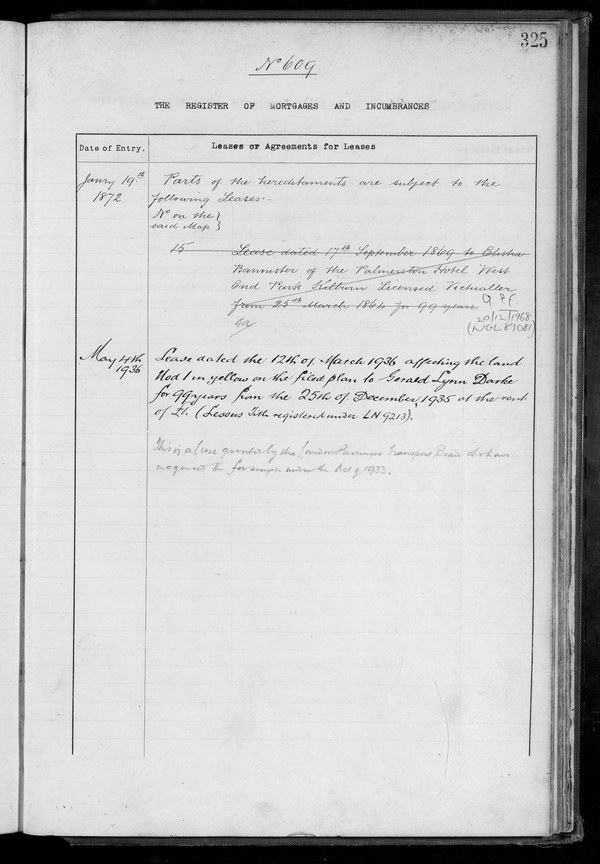 325
No 609
THE REGISTER OF MORTGAGES AND INCUMBRANCES
Date of Entry.
Leases or Agreements for Leases
Janry 19th
1872
Parts of the hereditaments are subject to the
following Leases:-
No on the
said Map
15
Lease dated 17th September 1869 to Elisha
Bannister of the Palmerston Hotel West
End Park Kilburn Licensed Victualler
from 25th March 1864 for 99 years.
20/12/1968
(NGL 89081)
May 4th
1936
Lease dated the 12th of March 1936 affecting the land
No 1 in yellow on the filed plan to Gerald Lynn Darke
for 99 years from the 25th of December, 1935 at the rent
of £1. (Lessees Title registered under LN 9213).
This is a lease granted by the London Passenger Transport Board who have
acquired the fee simple under the Act of 1933.